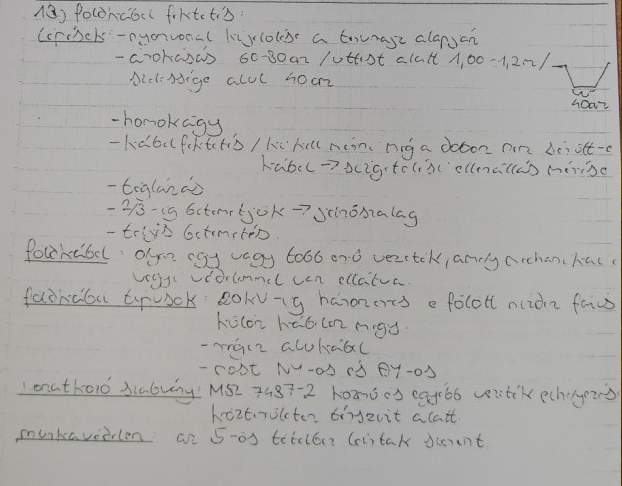 13, földkábel fektetés:
Lépések: - nyomvonal kijelölése a tervrajz alapján
- árokásás 60-80cm /úttest alatt 1,00-1,2m/
szélessége alul 40cm
40cm
- homokágy
- kábelfektetés / ki kell mérni még a dobon nem sérült-e
kábel → szigetelési ellenállás mérése
- téglázás
- 2/3-ig betemetjük → jelzőszalag
- teljes betemetés
földkábel: olyan egy vagy több erű vezeték, amely mechanikai
vegyi védelemmel van ellátva.
földkábel típusok: 20KV-ig háromeres e fölött minden fázis
külön kábelen megy.
- régen alukábel
- most NY-os és AY-os
vonatkozó szabvány: MSZ 7487-2 közmű és egyéb vezeték elhelyezés
közterületen térszint alatt.
munkavédelem: az 5-ös tételben leírtak szerint